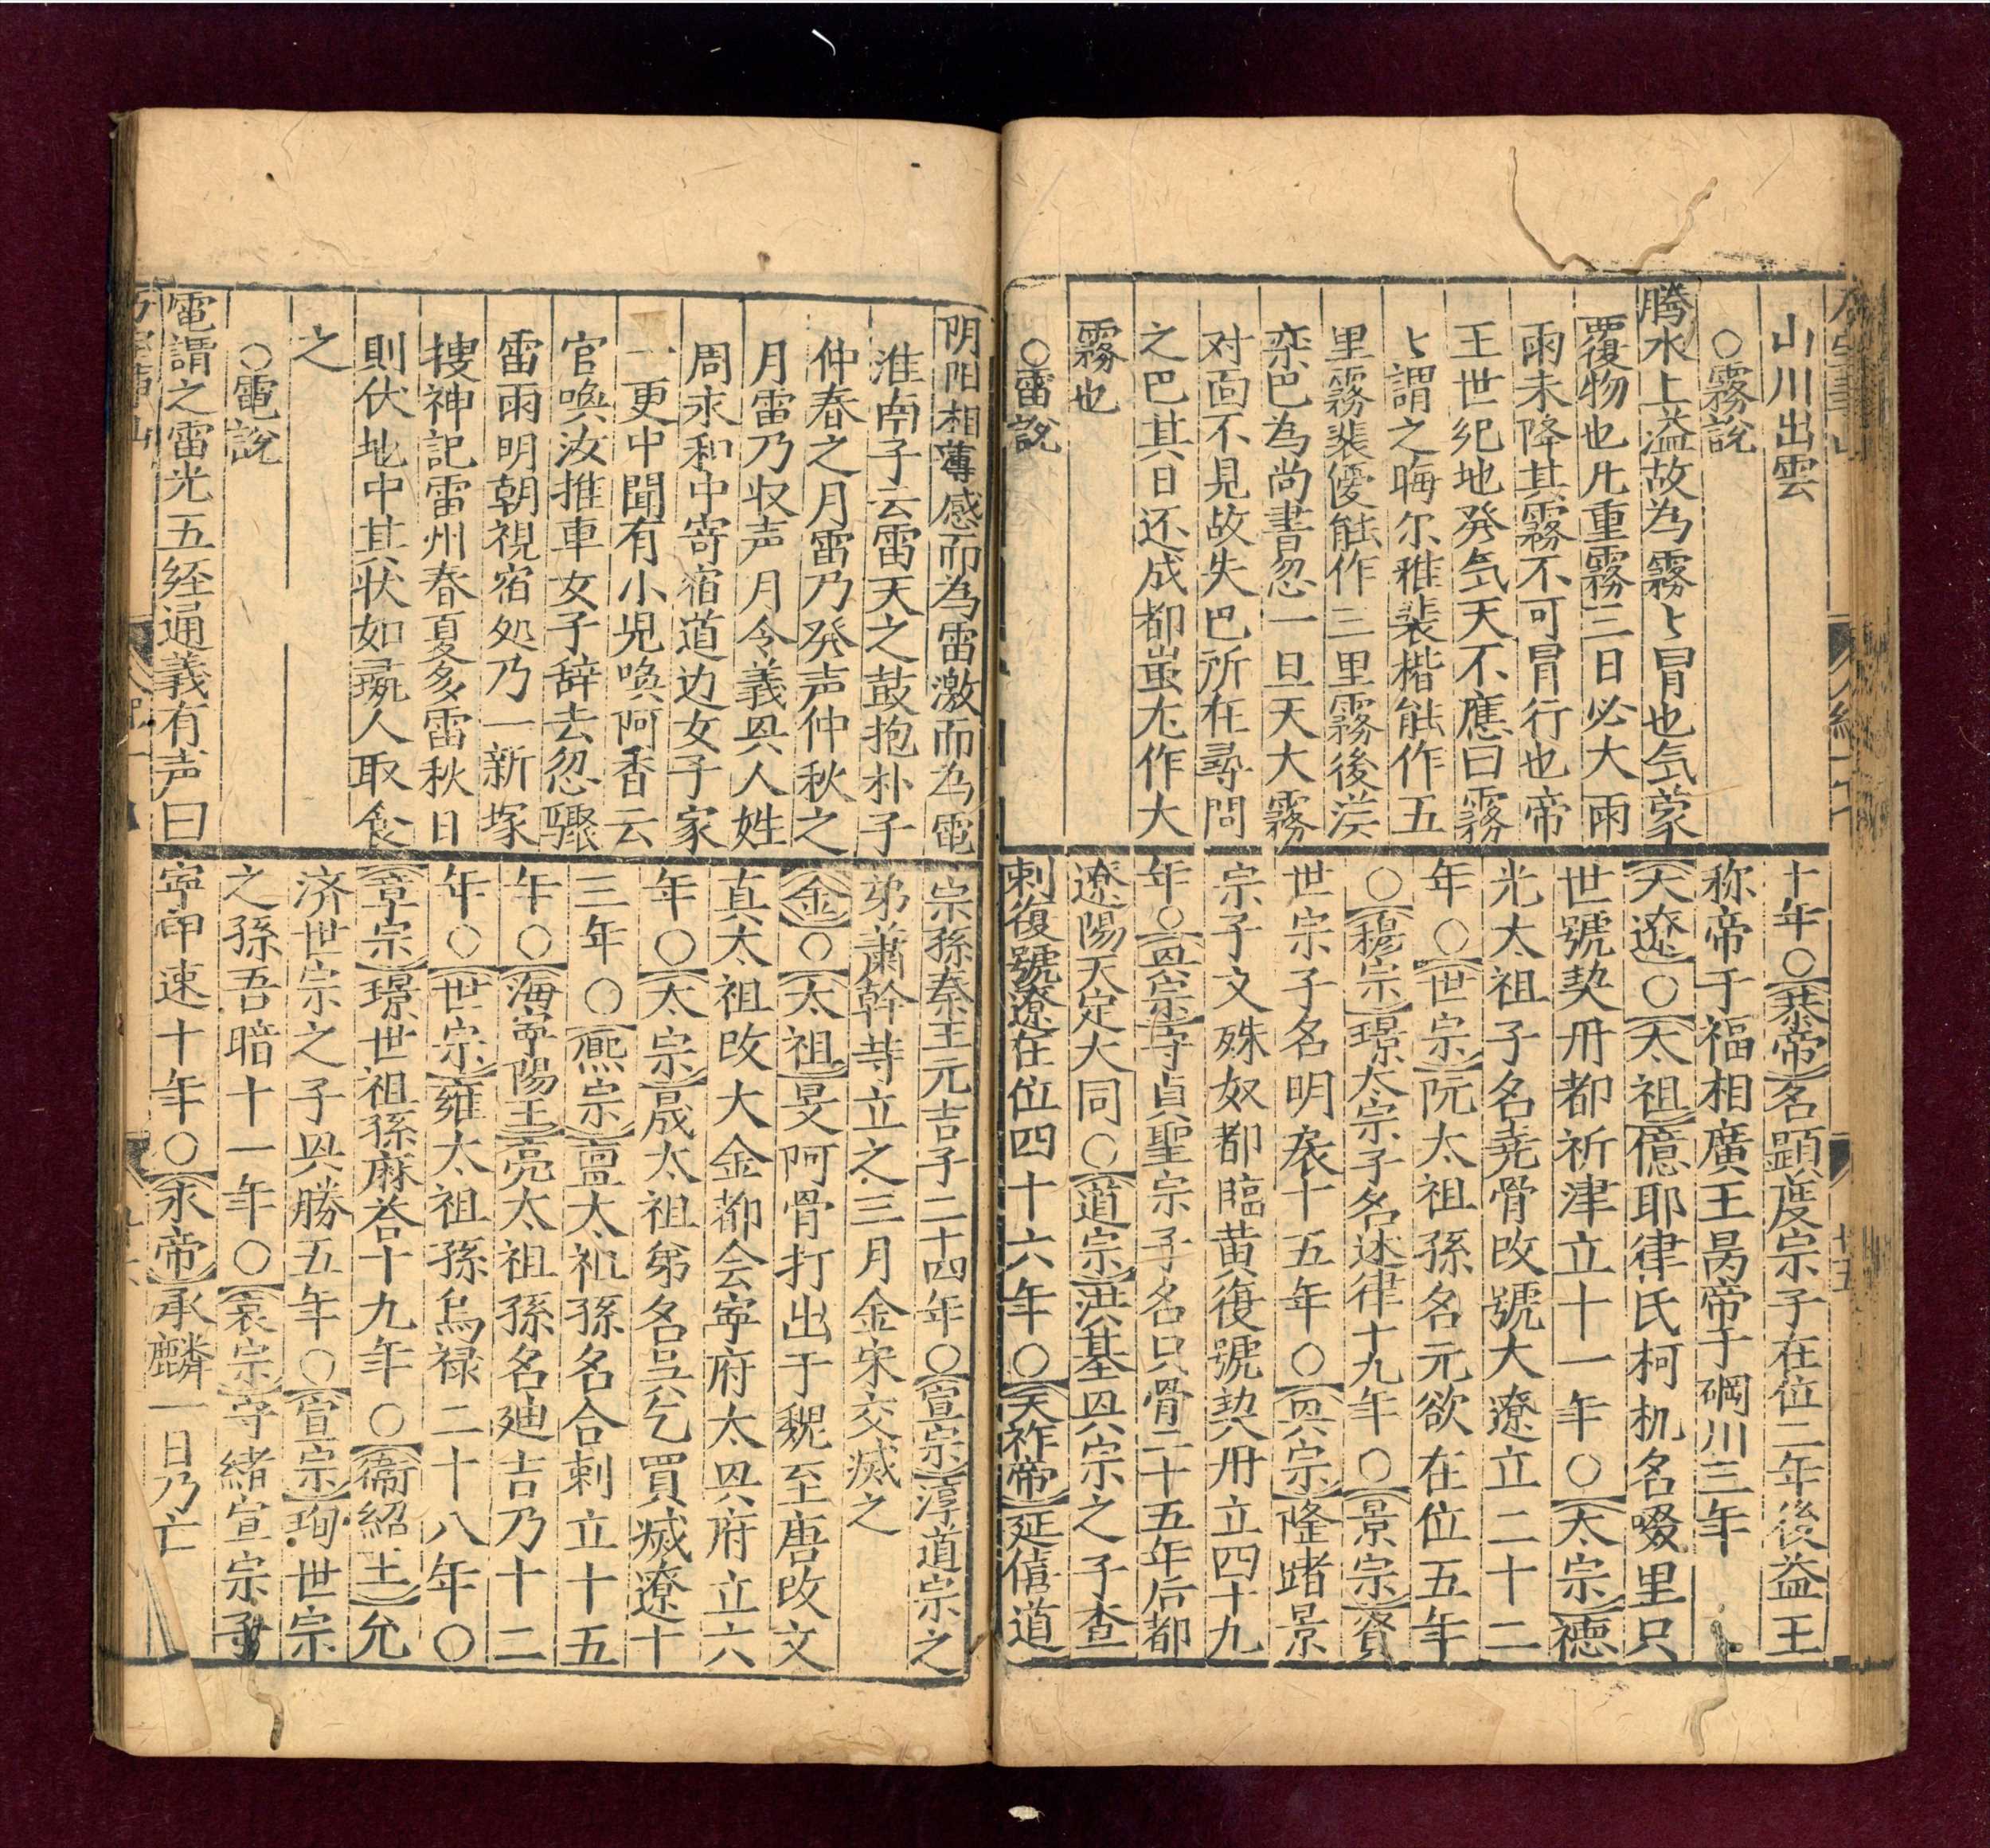 山川出雲
○霧說
腾水上溢故為霧〻冒也気蒙
覆物也凢重霧三日必大雨
雨未降其霧不可冐行也帝
王世紀地発気天不應曰霧
〻謂之晦尔雅裴楷能作五
里霧裴優能作三里霧後漢
栾巴為尚書忽一旦天大霧
对面不見故失巴所在尋問
之巴其日还成都蚩尤作大
霧也
○雷說
十年○恭帝名㬎度宗子在位二年後益王
称帝于福相廣王昺帝于碙川三年
大遼○太祖億耶律氏柯机名啜里只
世號契丹都祈津立十一年○太宗德
光太祖子名尭骨改號大遼立二十二
年○世宗阮太祖孫名元欲在位五年
○穆宗璟太宗子名述律十九年○景宗賢
世宗子名明扆十五年○㒷宗隆諸景
宗子文殊奴都臨黄復號契丹立四十九
年○㒷宗守貞聖宗子名只骨二十五年后都
遼陽天定大同○道宗洪基㒷宗之子查
剌復號遼在位四十六年○天祚帝延僖道
阴阳相薄感而為雷激而為電
淮南子云雷天之鼓抱朴子
仲春之月雷乃発声仲秋之
月雷乃収声月令義㒷人姓
周永和中寄宿道边女子家
一更中聞有小児唤阿香云
官唤汝推車女子辞去忽驟
雷雨明朝視宿処乃一新塚
捜神記雷州春夏多雷秋日
則伏地中其状如彘人取食
之
○電說
電謂之雷光五経通義有声曰
宗孫秦王元吉子二十四年○宣宗淳道宗之
弟蕭幹䓁立之三月金宋交滅之
金○太祖旻阿骨打出于靺至唐改文
真太祖改大金都会寕府太㒷府立六
年○太宗晟太祖弟名吴乞買滅遼十
三年○熈宗亶太祖孫名合剌立十五
年○海寕陽王亮太祖孫名廸吉乃十二
年○世宗雍太祖孫烏禄二十八年○
章宗璟世祖孫麻荅十九年○衛紹王允
済世宗之子㒷勝五年○宣宗珣世宗
之孫吾睹十一年○哀宗守緒宣宗子
寕甲速十年○承帝承麟一日乃亡